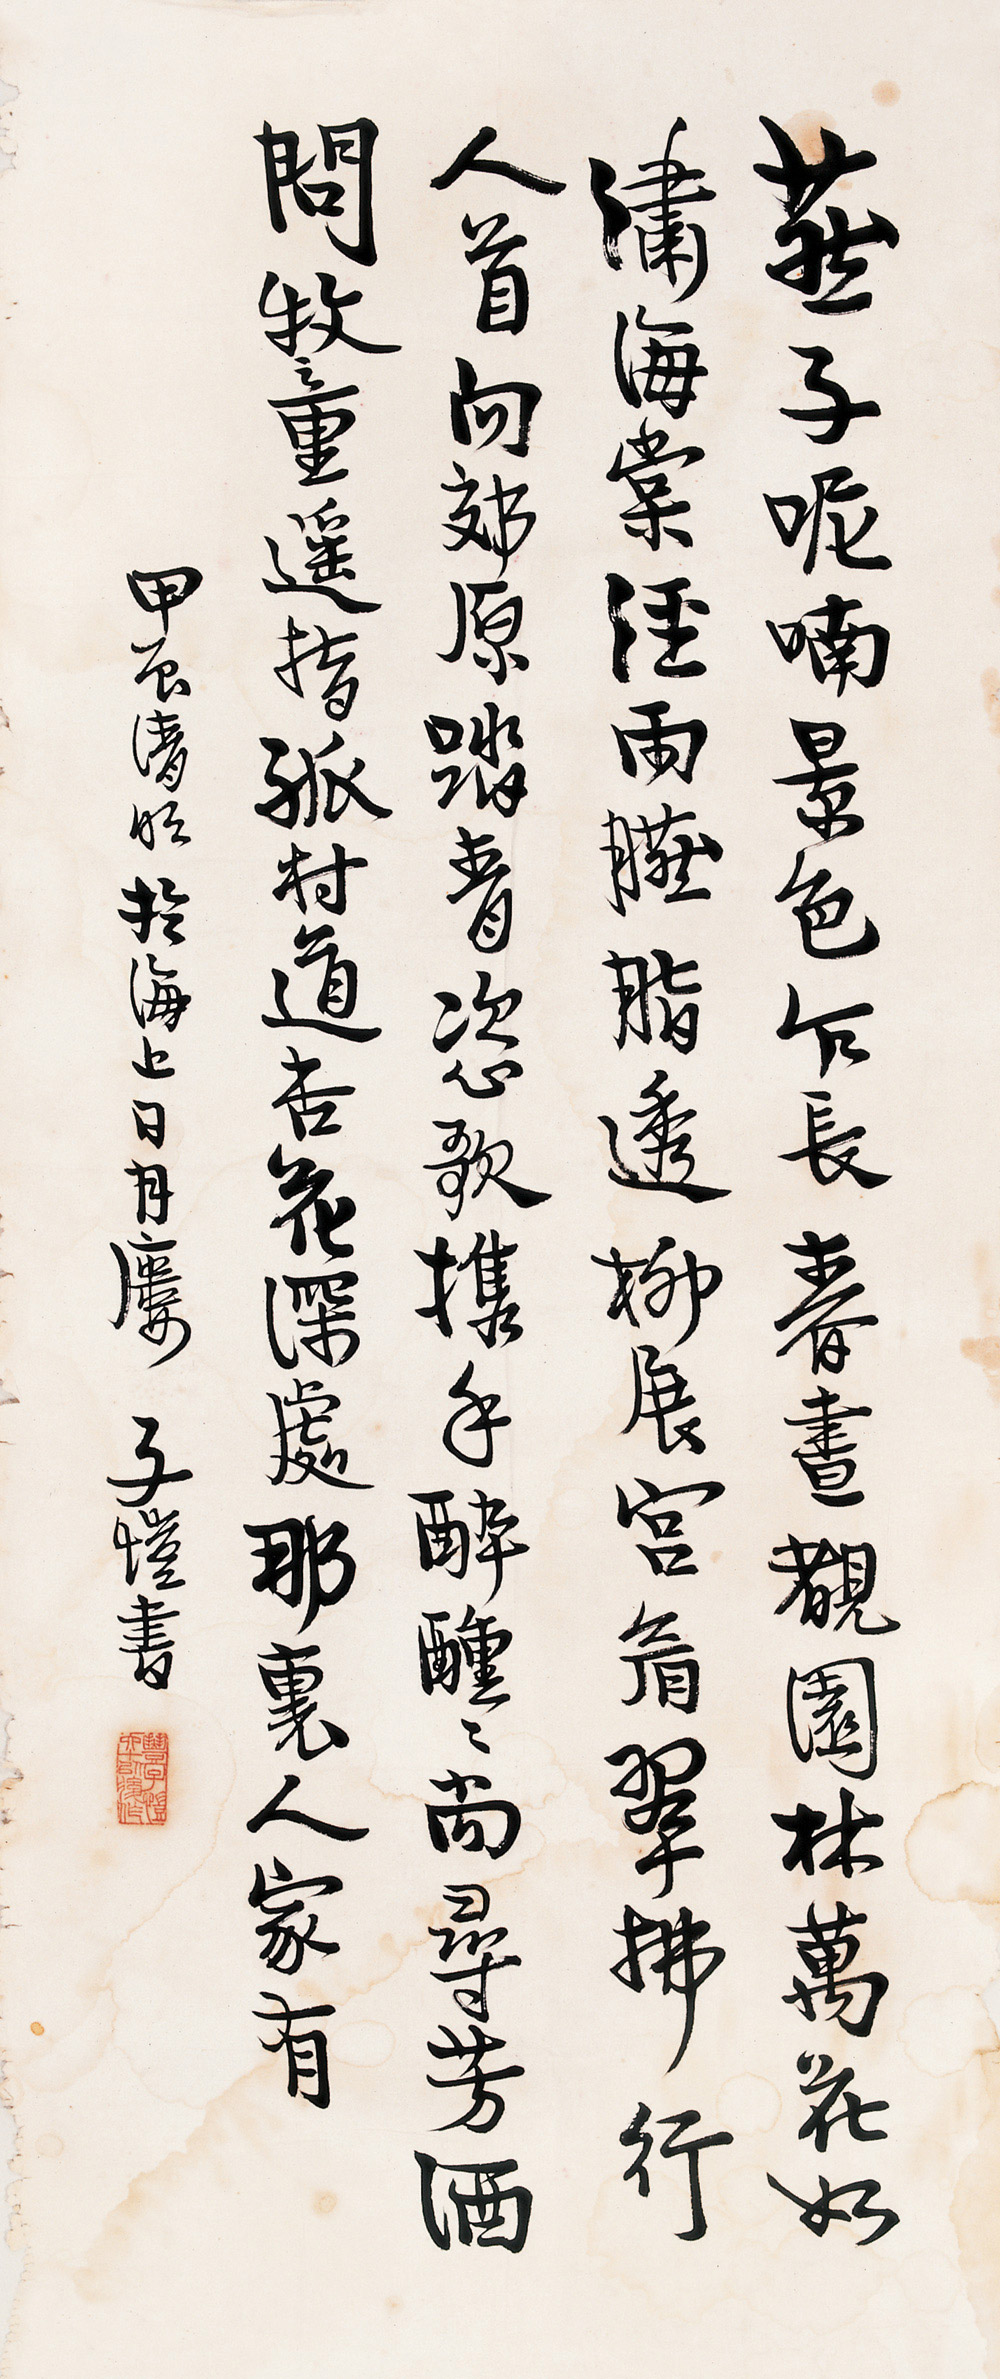 燕子呢喃景色乍長春晝覩園林萬花如
繡海棠經雨臙脂透柳展宮眉翠拂行
人首向郊原踏青恣歌攜手醉醺〻尚尋芳酒
問牧童遙指孤村道杏花深處那裏人家有
甲辰清明於海上日月廔 子愷書
豐子愷六十以後作